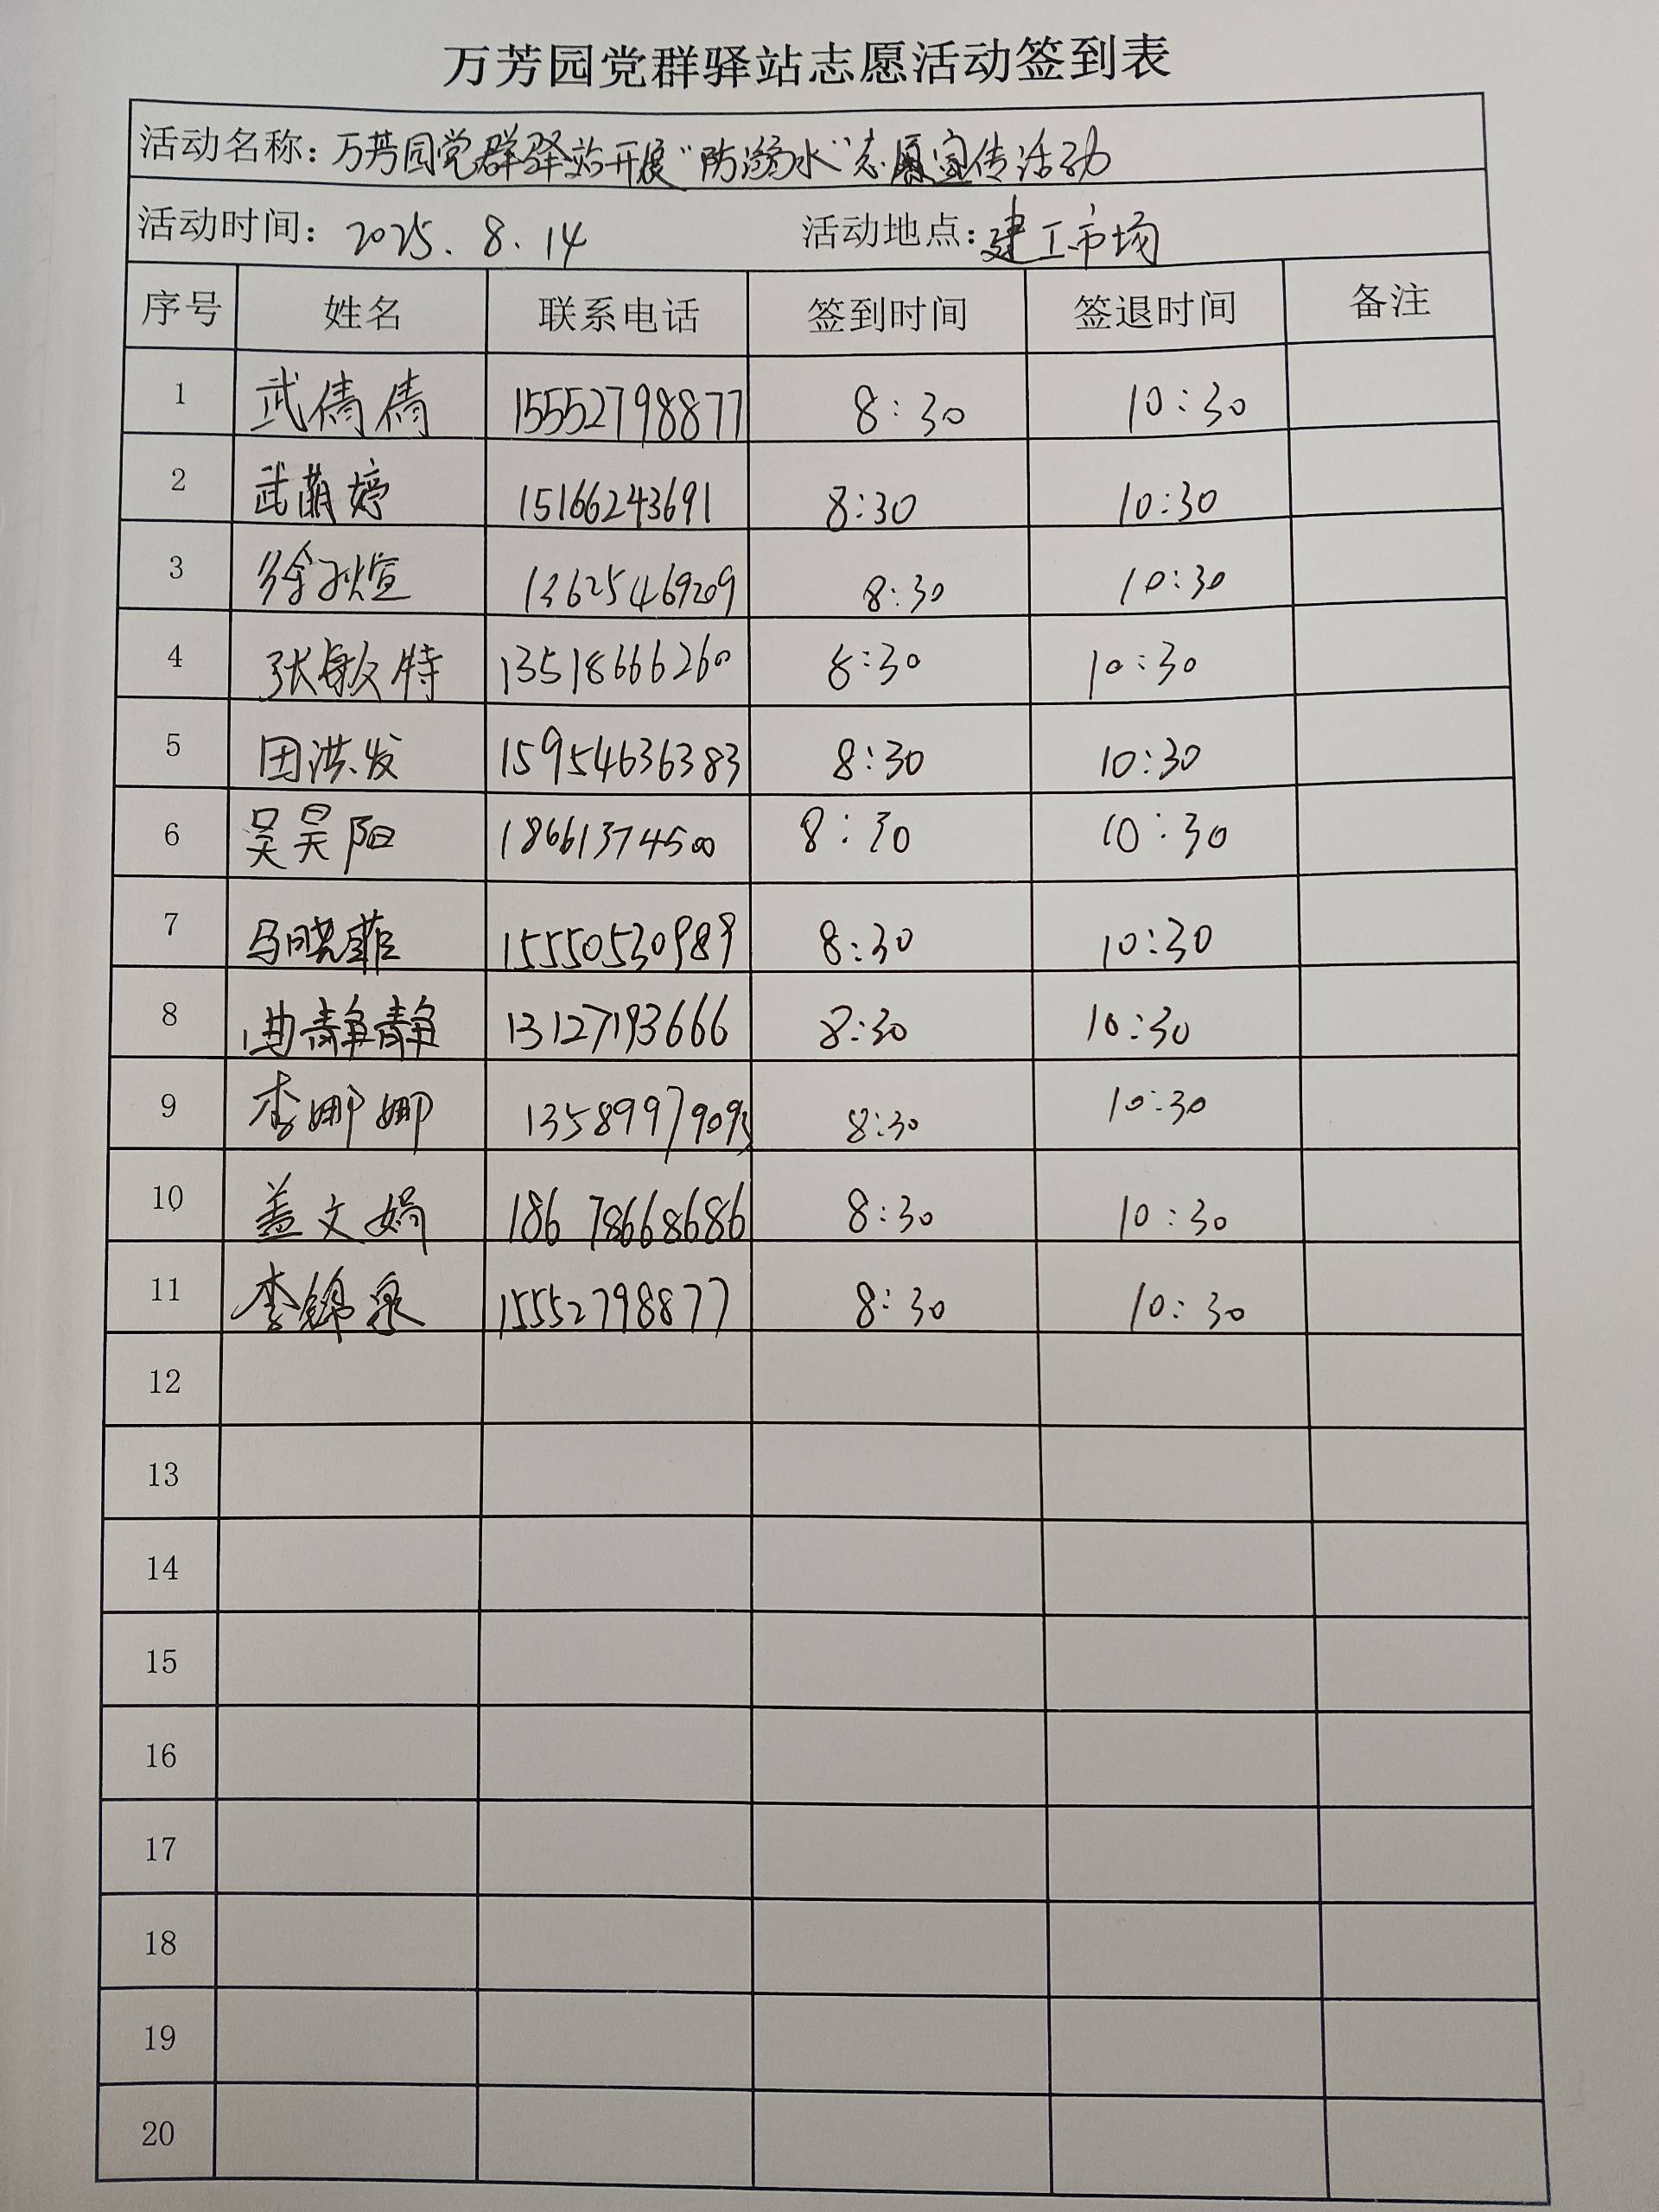 万芳园党群驿站志愿活动签到表
活动名称：万芳园党群驿站开展"防溺水"志愿宣传活动
活动时间：2025.8.14 活动地点：建工市场
序号 姓名 联系电话 签到时间 签退时间 备注
1 武倩倩 15552798877 8:30 10:30
2 武萌婷 15166243691 8:30 10:30
3 徐 煊 13625469209 8:30 10:30
4 张敏特 13518666260 8:30 10:30
5 田洪发 15954636383 8:30 10:30
6 吴昊阳 18661374500 8:30 10:30
7 马晓菲 15550530989 8:30 10:30
8 曲静静 13127193666 8:30 10:30
9 李娜娜 13589979093 8:30 10:30
10 盖文娟 186 78668686 8:30 10:30
11 李锦泉 15552798877 8:30 10:30
12
13
14
15
16
17
18
19
20